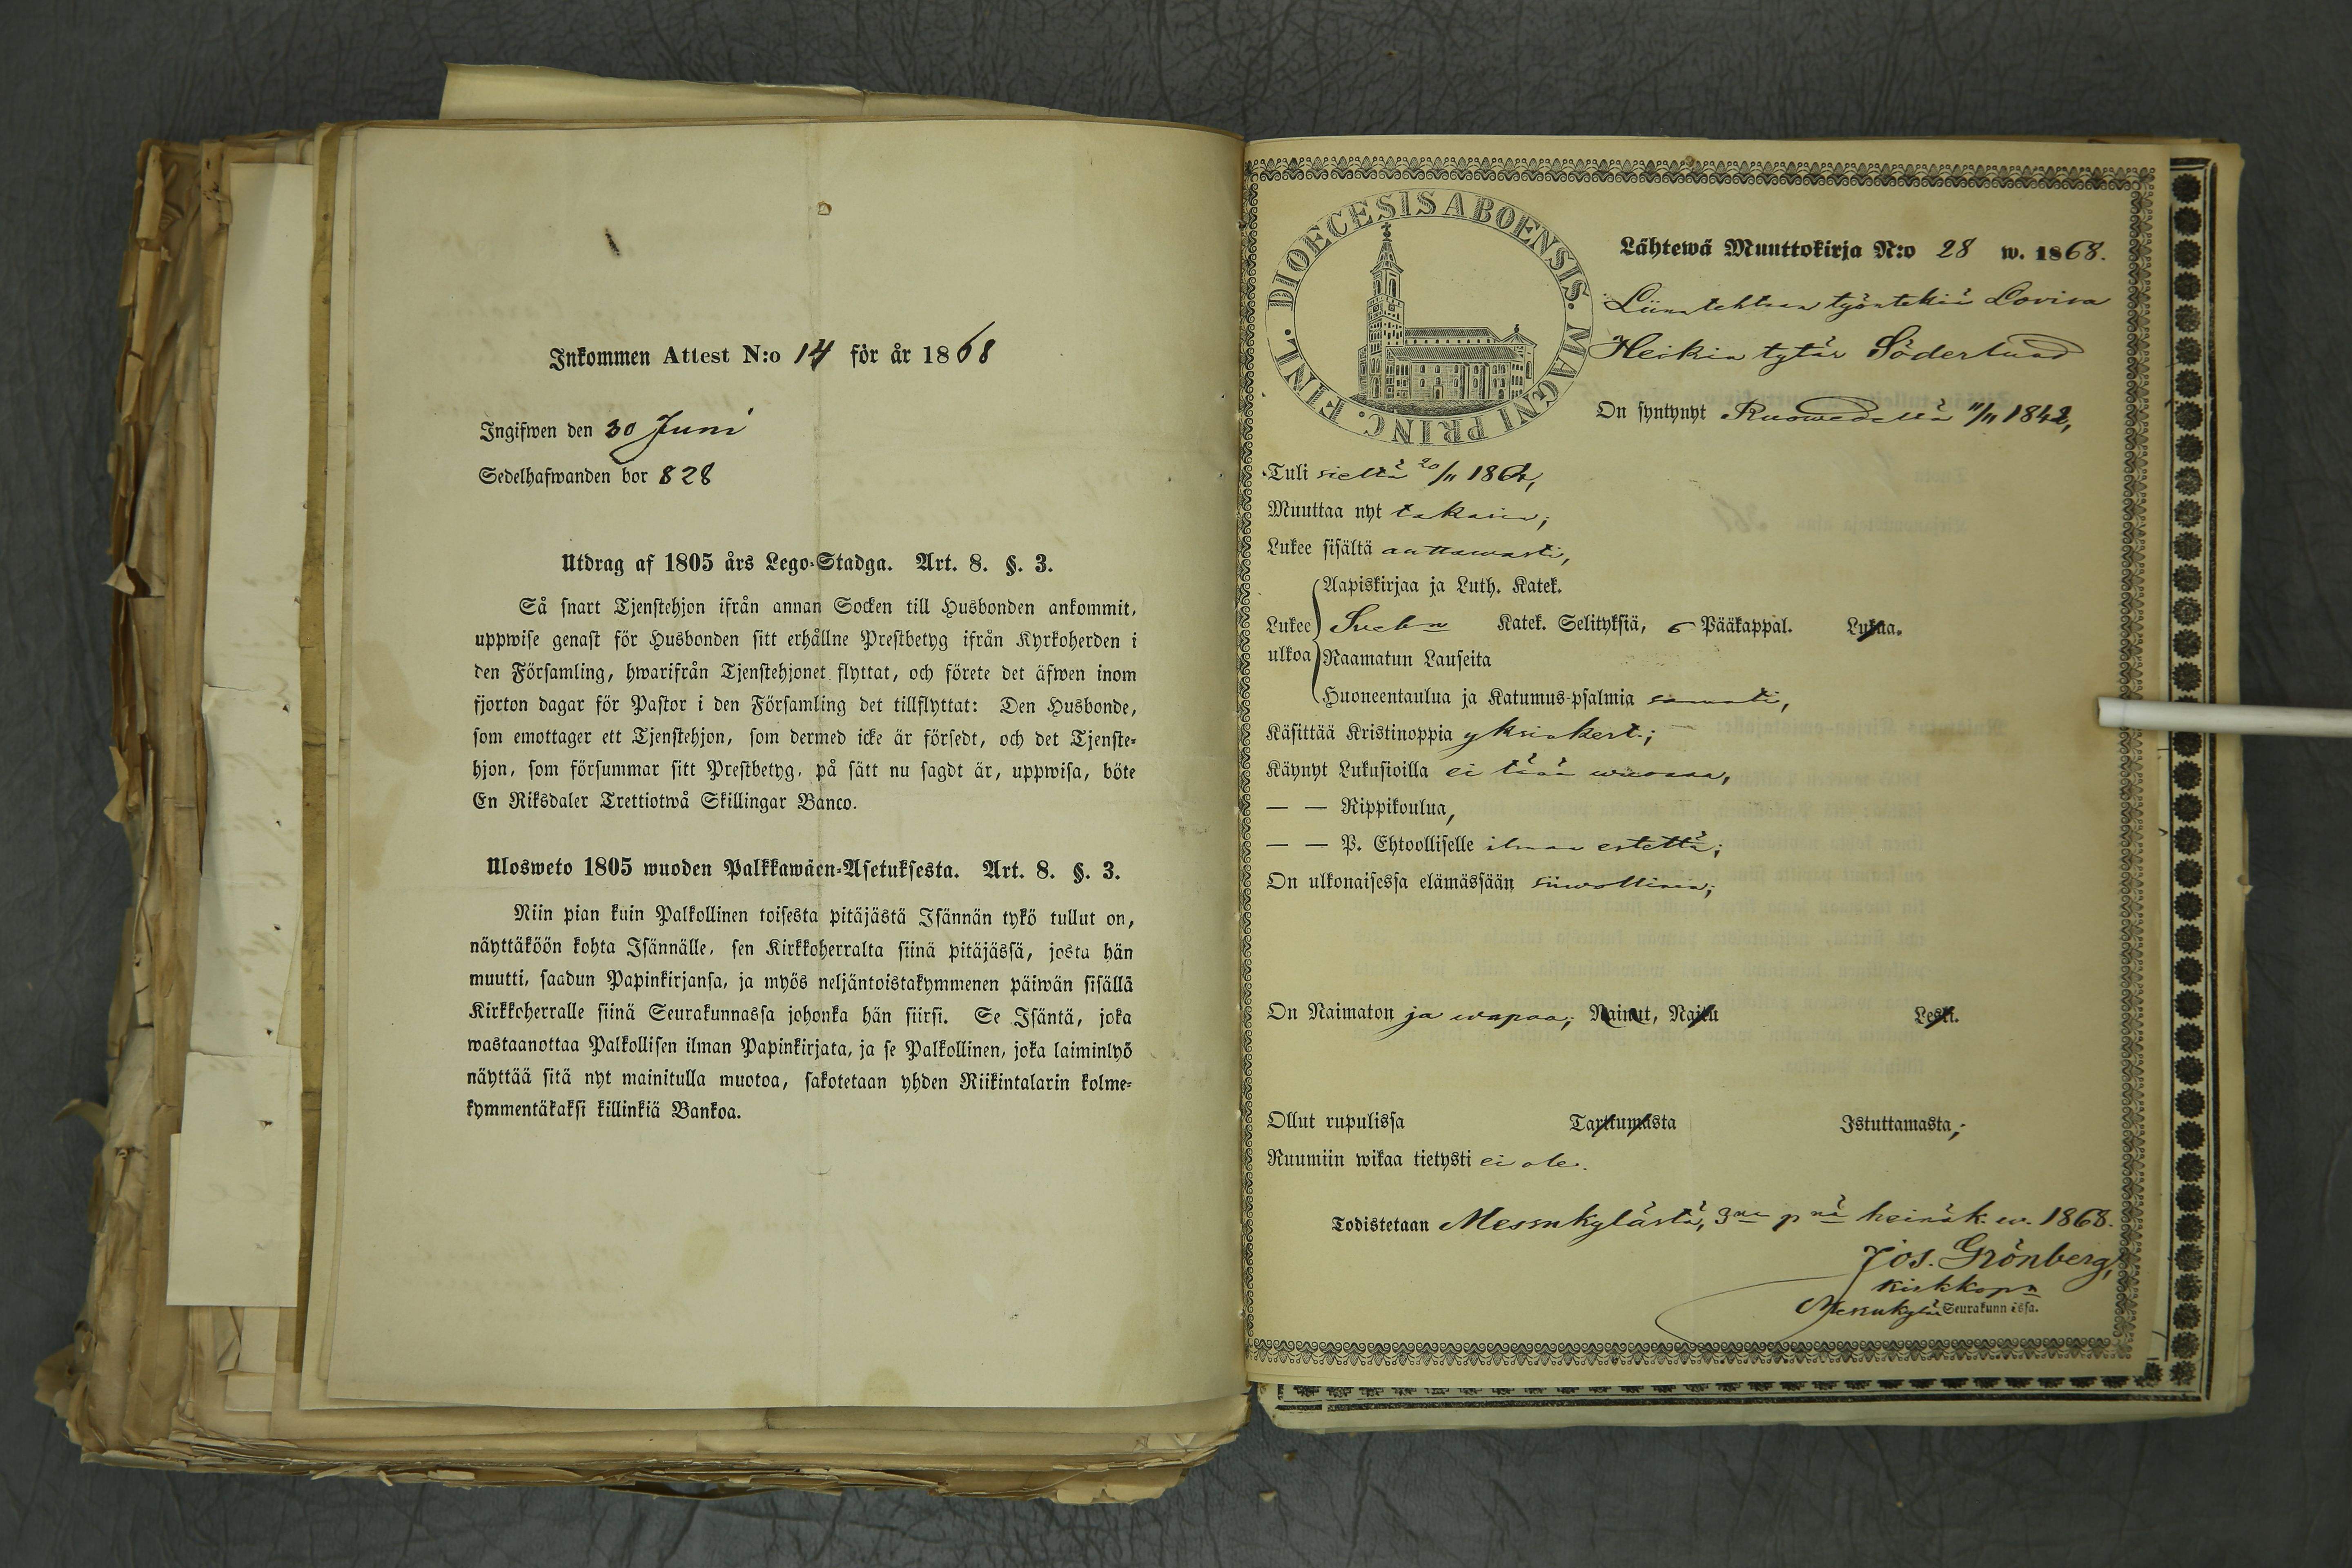 Inkommen Attest N:o 14 för år 1868
Ingifwen den 30 Juni
Sedelhafwanden bor 828
Utdrag af 1805 års Lego-Stadga. Art. 8. §. 3.
Så snart Tjenstehjon ifrån annan Socken till Husbonden ankommit,
uppwise genast för Husbonden sitt erhållne Prestbetyg ifrån Kyrkoherden i
den Församling, hwarifrån Tjenstehjonet flyttat, och förete det äfwen inom
fjorton dagar för Pastor i den Församling det tillflyttat: Den Husbonde,
som emottager ett Tjenstehjon, som dermed icke är försedt, och det Tjenste-
hjon, som försummar sitt Prestbetyg, på sätt nu sagdt är, uppwisa, böte
En Riksdaler Trettiotwå Skillingar Banco.
Ulosweto 1805 wuoden Palkkawäen-Asetuksesta. Art. 8. §. 3.
Niin pian kuin Palkollinen toisesta pitäjästä Isännän tykö tullut on,
näyttäköön kohta Isännälle, sen Kirkkoherralta siinä pitäjässä, josta hän
muutti, saadun Papinkirjansa, ja myös neljäntoistakymmenen päiwän sisällä
Kirkkoherralle siinä Seurakunnassa johonka hän siirsi. Se Isäntä, joka
wastaanottaa Palkollisen ilman Papinkirjata, ja se Palkollinen, joka laiminlyö
näyttää sitä nyt mainitulla muotoa, sakotetaan yhden Riikintalarin kolme-
kymmentäkaksi killinkiä Bankoa.
DIOECESIS ABOENSIS. MAGNI PRINC. FINL.
Lähtewä Muuttokirja N:o 28 w. 1868.
työntekiä Lovisa
Heikin tytär Söderlund
On syntynyt Ruowedellä 11/11 1842,
Tuli sieltä 20/11 186
Muuttaa nyt takasin;
Lukee sisältä auttawasti,
Aapiskirjaa ja Luth. Katek.
Lukee Sveb:n Katek. Selityksiä, 6 Pääkappal. Lukua.
ulkoa Raamatun Lauseita
Huoneentaulua ja Katumus-psalmia samati,
Käsittää Kristinoppia yksinkert.;
Käynyt Lukusioilla ei tänä wuonna,
— — Rippikoulua,
— — P. Ehtoolliselle ilman estettä;
On ulkonaisessa elämässään siiwollinen;
On Naimaton ja wapaa; Nainut, Naitu Leski.
Ollut rupulissa Tarttumasta Istuttamasta;
Ruumiin wikaa tietysti ei ole.
Todistetaan Messukylästä, 3na p:nä heinäk. w. 1868.
Jos. Grönberg,
kirkkop:n
Messukylä Seurakunnissa.